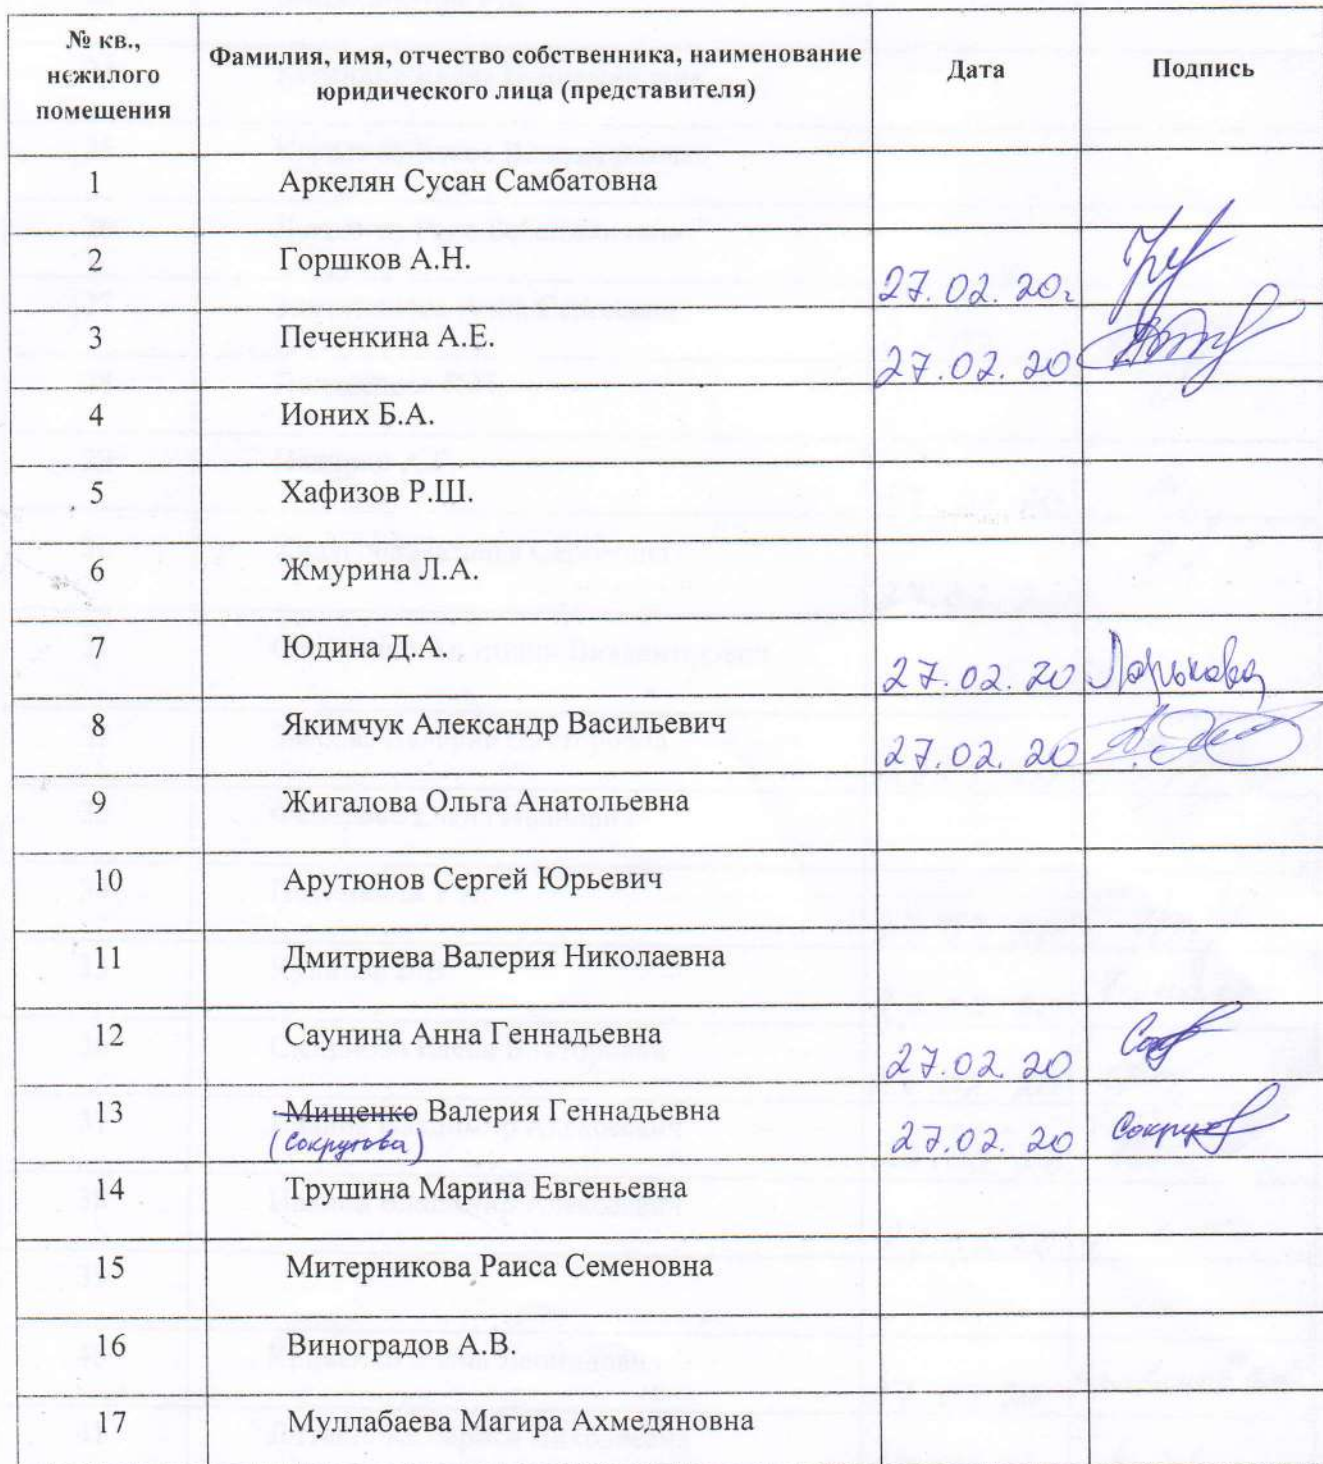 № кв., нежилого помещения Фамилия, имя, отчество собственника, наименование юридического лица (представителя) Дата Подпись
1 Аркелян Сусан Самбатовна
2 Горшков А.Н. 27.02.20г
3 Печенкина А.Е. 27.02.20
4 Ионих Б.А.
5 Хафизов Р.Ш.
6 Жмурина Л.А.
7 Юдина Д.А. 27.02.20 Ларькова
8 Якимчук Александр Васильевич 27.02.20
9 Жигалова Ольга Анатольевна
10 Арутюнов Сергей Юрьевич
11 Дмитриева Валерия Николаевна
12 Саунина Анна Геннадьевна 27.02.20
13 Мищенко Валерия Геннадьевна 27.02.20
(Сокрутова)
14 Трушина Марина Евгеньевна
15 Митерникова Раиса Семеновна
16 Виноградов А.В.
17 Муллабаева Магира Ахмедяновна